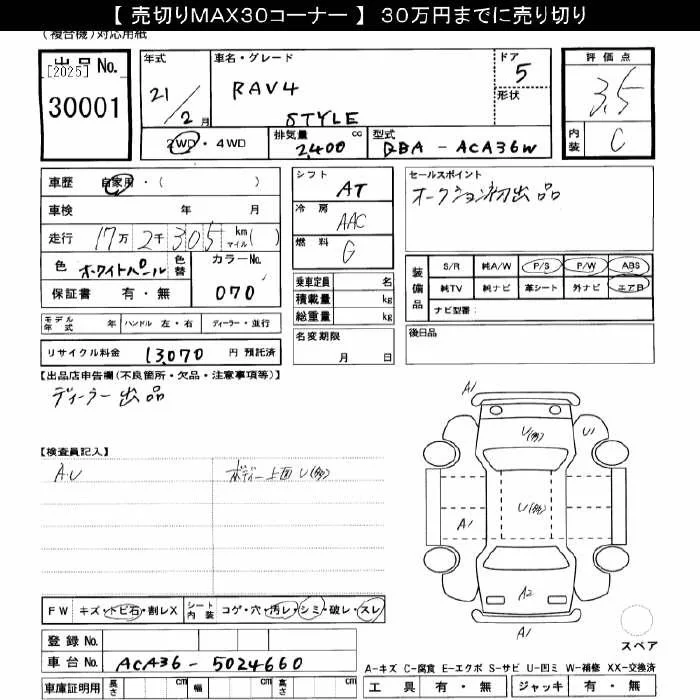 【 売切りMAX30コーナー 】 30万円までに売り切り
(複合機)対応用紙
出品No.
[2025]
30001
年式
21/2月
車名・グレード
RAV4
STYLE
ドア
5
形状
評価点
3.5
内装
C
2WD・4WD
排気量
2,400 cc
型式
DBA - ACA36W
車歴 自家用・( )
車検 年 月
走行 17万 2千 305 km マイル ( )
色 ホワイトパール
色替
カラーNo.
070
保証書 有・無
モデル年式 年 ハンドル 左・右 ディーラー・並行
リサイクル料金 13,070 円 預託済
シフト
AT
冷房
AAC
燃料
G
乗車定員 名
積載量 kg
総重量 kg
名変期限
月 日
セールスポイント
オークション初出品
装備品
S/R 純A/W P/S P/W ABS
純TV 純ナビ 革シート 外ナビ エアB
ナビ型番:
後日品
【出品店申告欄(不良箇所・欠品・注意事項等)】
ディーラー出品
【検査員記入】
A.U
ボディー上面 U(多)
A1
U(多)
U1
U(多)
A1
A2
A1
スペア
FW キズ・トビ石・割レX
シート内装 コゲ・穴・汚レ・シミ・破レ・スレ
登録No.
車台No. ACA36 - 5024660
車庫証明用 長さ cm 幅 cm 高さ cm
A-キズ C-腐食 E-エクボ S-サビ U-凹ミ W-補修 XX-交換済
工具 有・無 ジャッキ 有・無